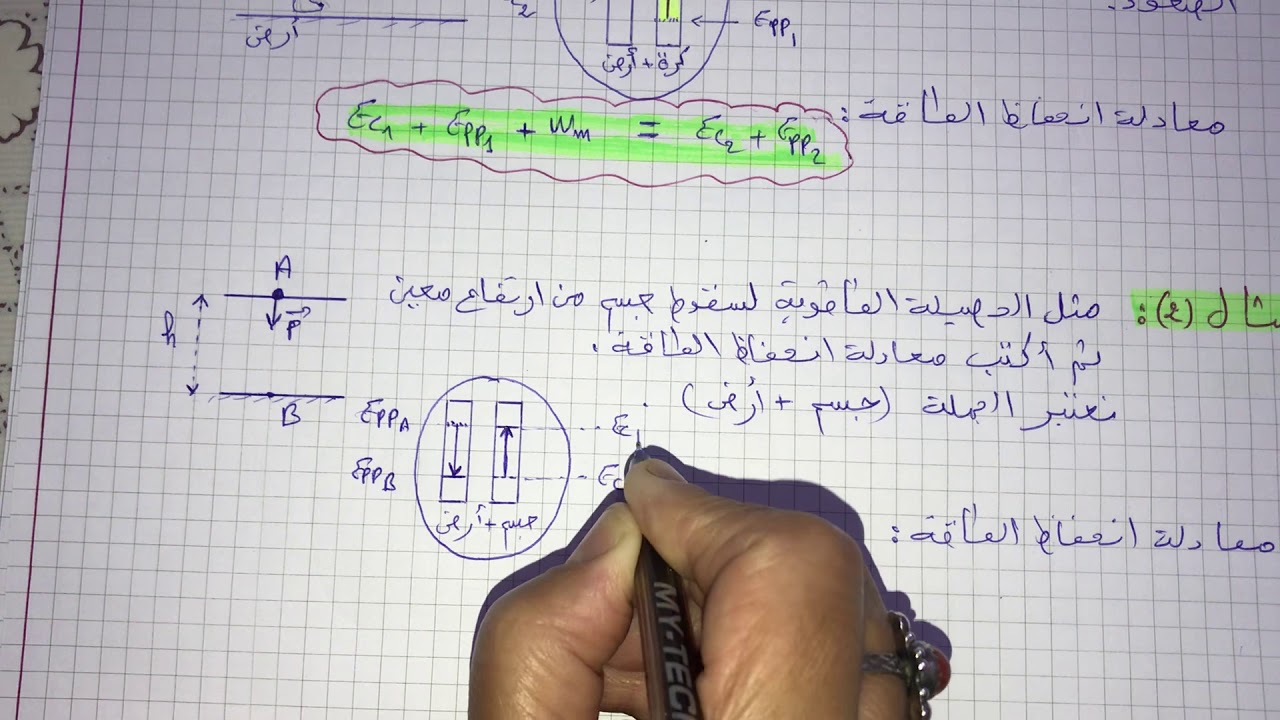 أرض
2
Epp1
كرة + أرض
الصعود.
معادلة انحفاظ الطاقة:
Ec1 + Epp1 + Wm = Ec2 + Epp2
مثال (2): مثل الحصيلة الطاقوية لسقوط جسم من ارتفاع معين
ثم أكتب معادلة انحفاظ الطاقة.
نعتبر الجملة (جسم + أرض)
A
P
h
B
EppA
EppB
E
Ec
جسم + أرض
معادلة انحفاظ الطاقة:
MY-TECH